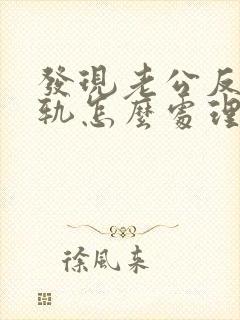 發現老公反
軌怎麼處理
徐風來